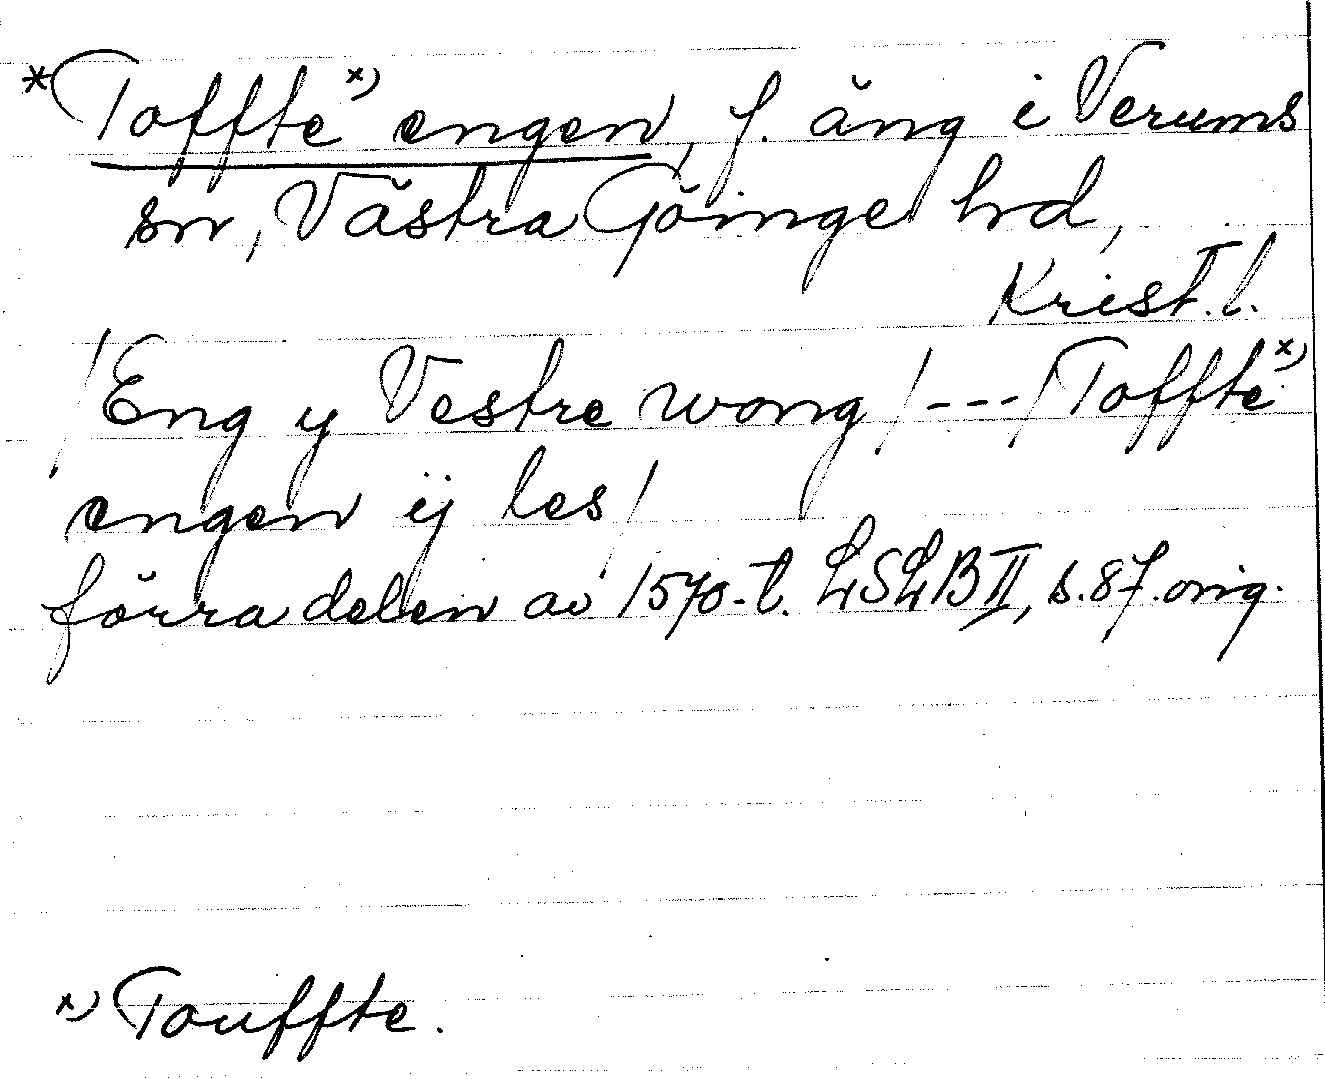 *Toffte x) engen, f. äng i Verums
sn, Västra Göinge hd,
Krist. l.
/Eng y Vestre wong/---/Toffte x)
engen ij les/
förra delen av 1570-t. LSLB II, s. 87. orig.
x) Touffte.